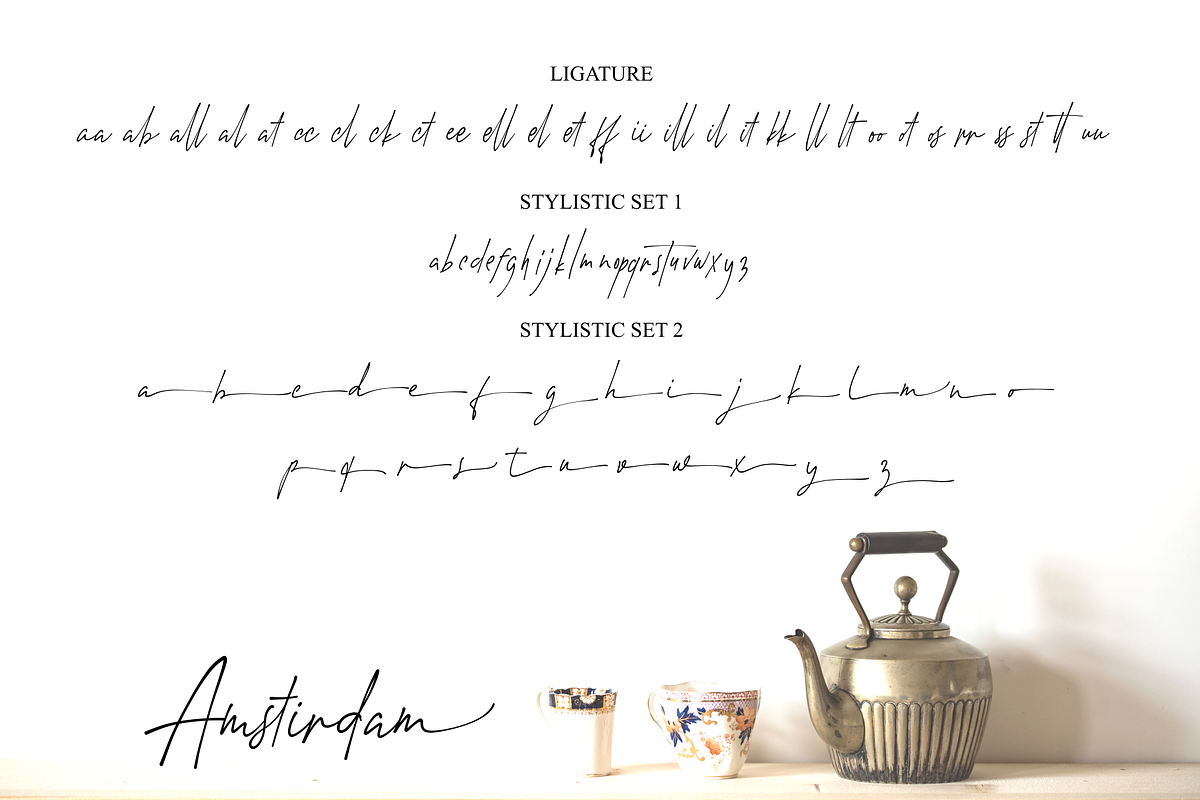 LIGATURE
aa ab all al at cc cl ck ct ee ell el et ff ii ill il it kk ll lt oo ot os rr ss st tt uu
STYLISTIC SET 1
abcdefghijklmnopqrstuvwxyz
STYLISTIC SET 2
a b c d e f g h i j k l m n o
p q r s t u v w x y z
Amstirdam